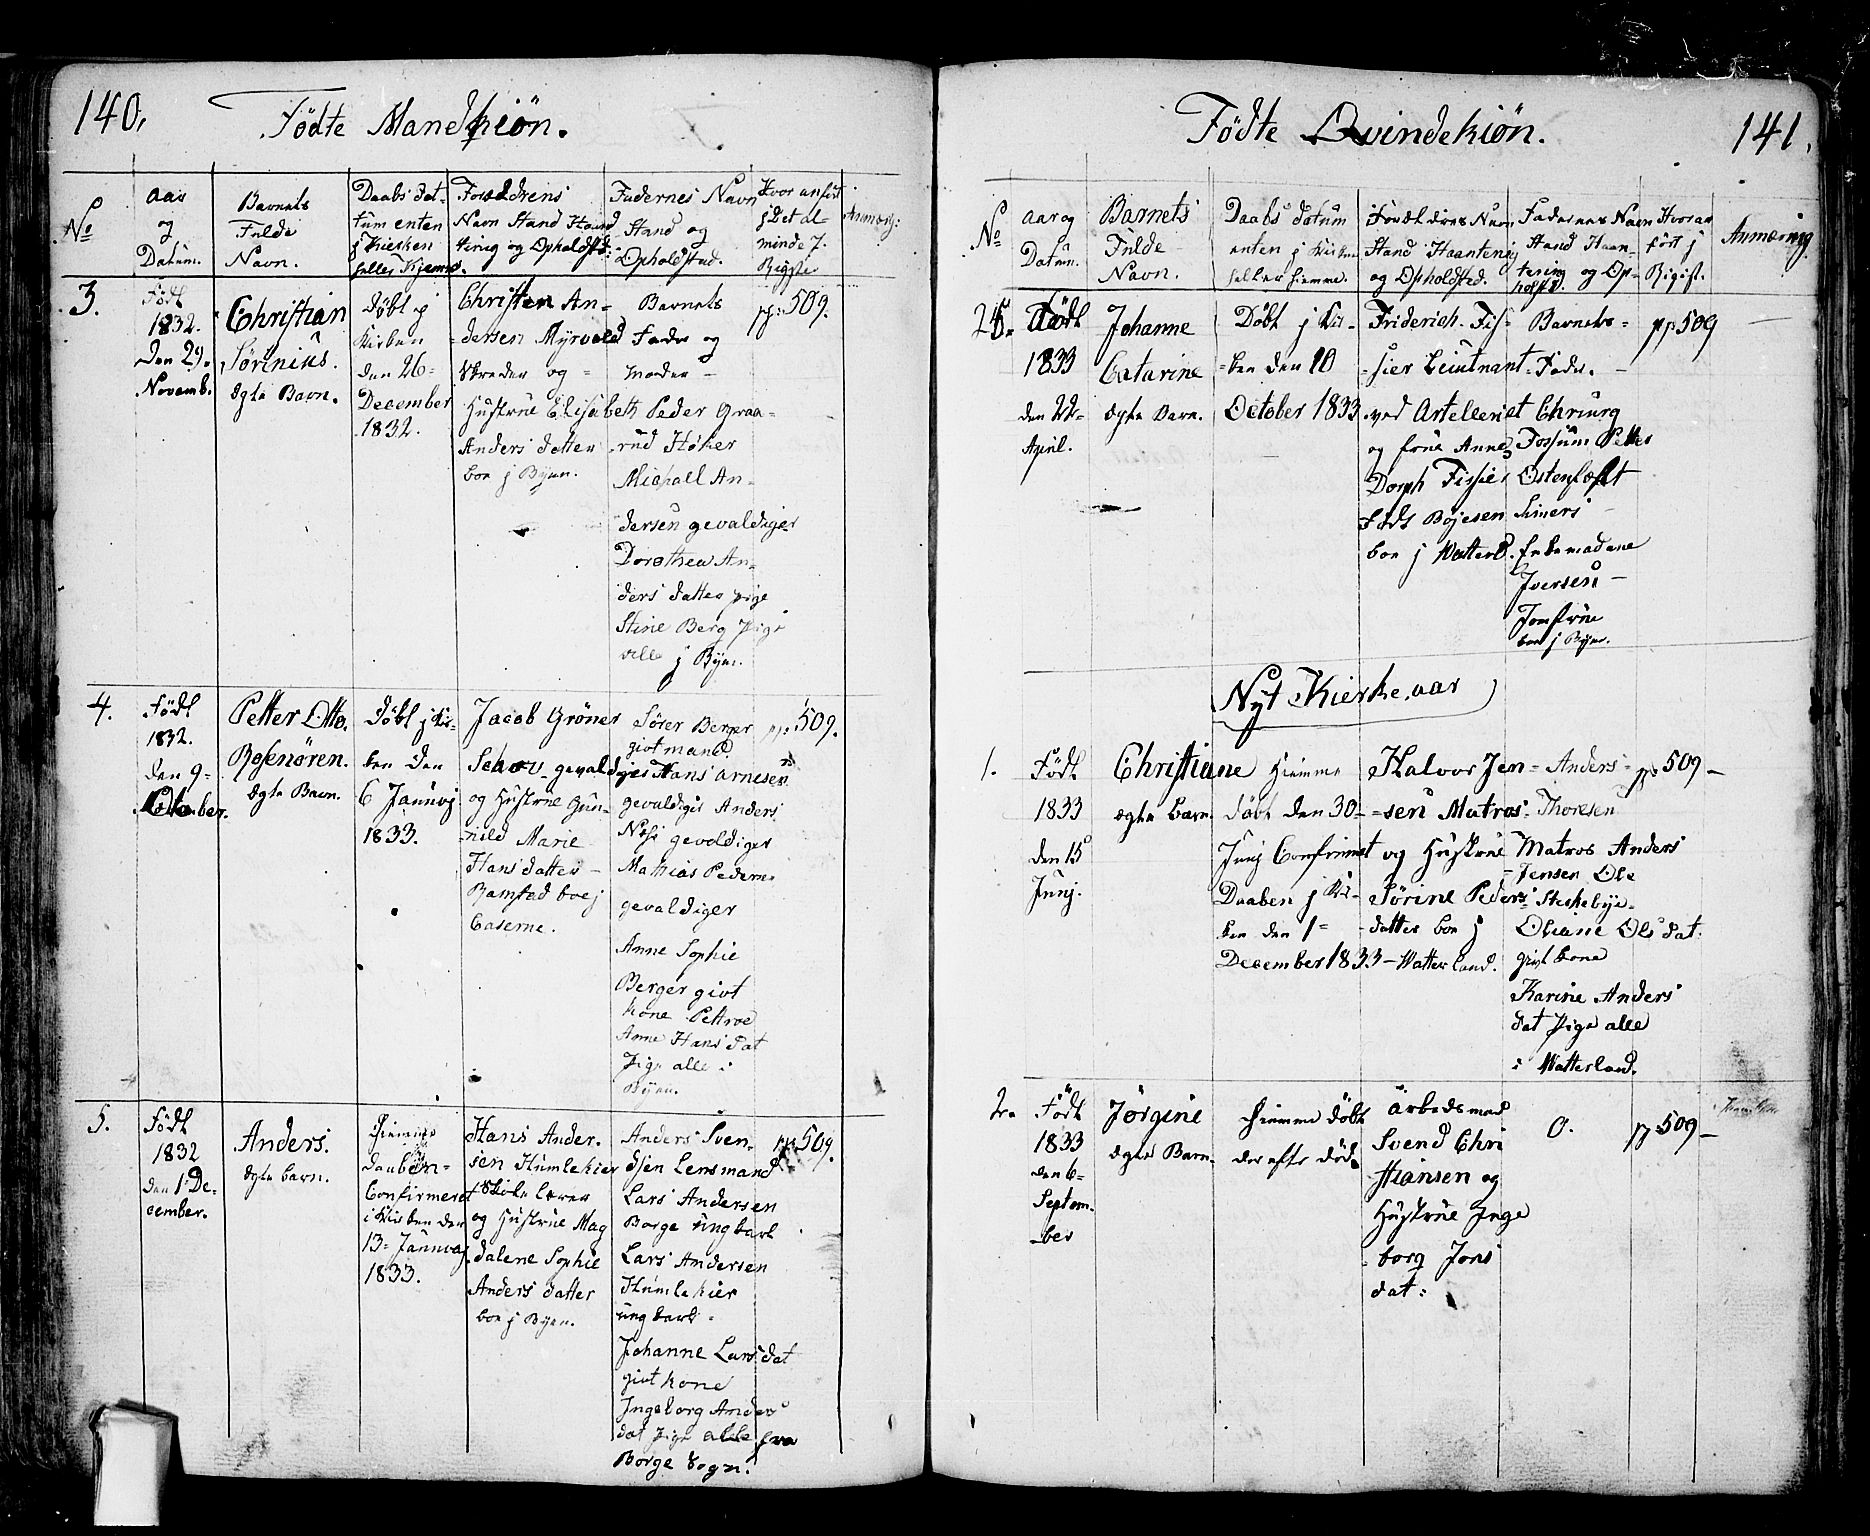 140.
Fødte Mandkiøn.
No
aar
og
Datum.
Barnets
Fulde
Navn.
Daabs dat-
tum enten
j Kirken
heller hjeme.
Forældrens
Navn Stand Haand
tering og Opholdsted:
Fadernes Navn
Stand og
Opholdstad.
Hvor anført
j Det al-
minde 7.
Registe
Anmærg:
3.
Født
1832.
den 29.
Novemb.
Christian
Sørinius.
Ægte Barn.
Døbt i
Kirken
den 26=
December
1832.
Christen An-
dersen Myrvold
Skreder og =
Hustrue Elisabeth
Anders datter
boe j Byen.
Barnets
Fader og
Moder -
Peder Graa-
rud Høker
Michall An-
dersen gevaldiger
Dorothea An-
ders datter pige
Stine Berg Pige
alle j Byen.
pp: 509.
4.
Født
1832.
den 9=
October.
Petter Otto.
Rosenøren.
Ægte Barn.
Døbt j Kir-
ken den
6 Januarj
1833.
Jacob Grøner
Schov gevaldiger
og Hustrue Gun-
nild Marie
Hans datter -
Ramstad boe j
Caserne.
Sører Berger
givt mand
Hans Arnesen
gevaldigis Anders
Nesi gevoldiger
Mathias Peders
gevaldiger
Anne Sophie
Berger givt
kone Pettroe
Anne Hans dat
Pige alle i
Byen.
pp: 509.
5.
Født
1832
den 1 De-
cember.
Anders.
Ægte barn.
Hiemme
daaben =
Confirmeret
i Kirken den
13= Januarj.
1833.
Hans Ander.
sen Humlekier
Skole lærer
og Hustrue Mag
dalene Sophie
Anders datter
boe j Byen.
Anders Sven-
dsen Lensmand
Lars Andersen
Borge ungkarl
Lars Andersen
Humlekier
ungkarl =
Johanne Lars dat
givt kone
Ingeborg Anders
dat Pige alle fra
Borge Sogn.
pp: 509.
Fødte Qvindekiøn.
141.
No
aar og
Datum.
Barnets
Fulde
Navn.
Daabs datum
enten j Kirken
heller hiemme.
Forældres Navn
Stand Haantering
og Opholdsted.
Fadernes Navn
Stand Haan-
tering og Op-
holsd.
Hvor an
ført j
Regist.
Anmærning
25.
Født
1833
den 22-
April.
Johanne
Catarine
Ægte Barn.
Døbt j Kir-
ken den 10
October 1833
Friderich. Fis-
sier Leiutnant
ved Artelleriet
og frue Anne
Dorph Fisier
Føds Bøjesen
boe j Watterl.
Barnets=
Fader. -
Chrurg
Fossum Petter
Ostenfæft
Simers
Enkemadame
Iversen -
Jomfrue
boe j Byen.
pp 509
Nyt Kierke.aar
1.
Født
1833
den 15
Junj.
Christiane
Ægte barn.
Hiemme
døbt den 30-
Junj Confirmet
Daaben j Kir-
ken den 1=
December 1833
Halvor Jen=
=sen Matros
og Hustrue
Sørine Peders
datter boe j
Watterland.
Anders
Thoresen
Matros Anders
Jensen Ole
Stichebye-
Oliane Ols dat:
givt kone
Karine Anders
dat Pige alle
i Watterland.
pp 509 -
2.
Født
1833
den 6-
Septem-
ber
Jørgine
Ægte Barn.
Hiemme døbt
der efter død.
Arbedsmad
Svend Chri
stiansen og
Hustrue Inge
borg Jons
dat:
0.
pp 509 -